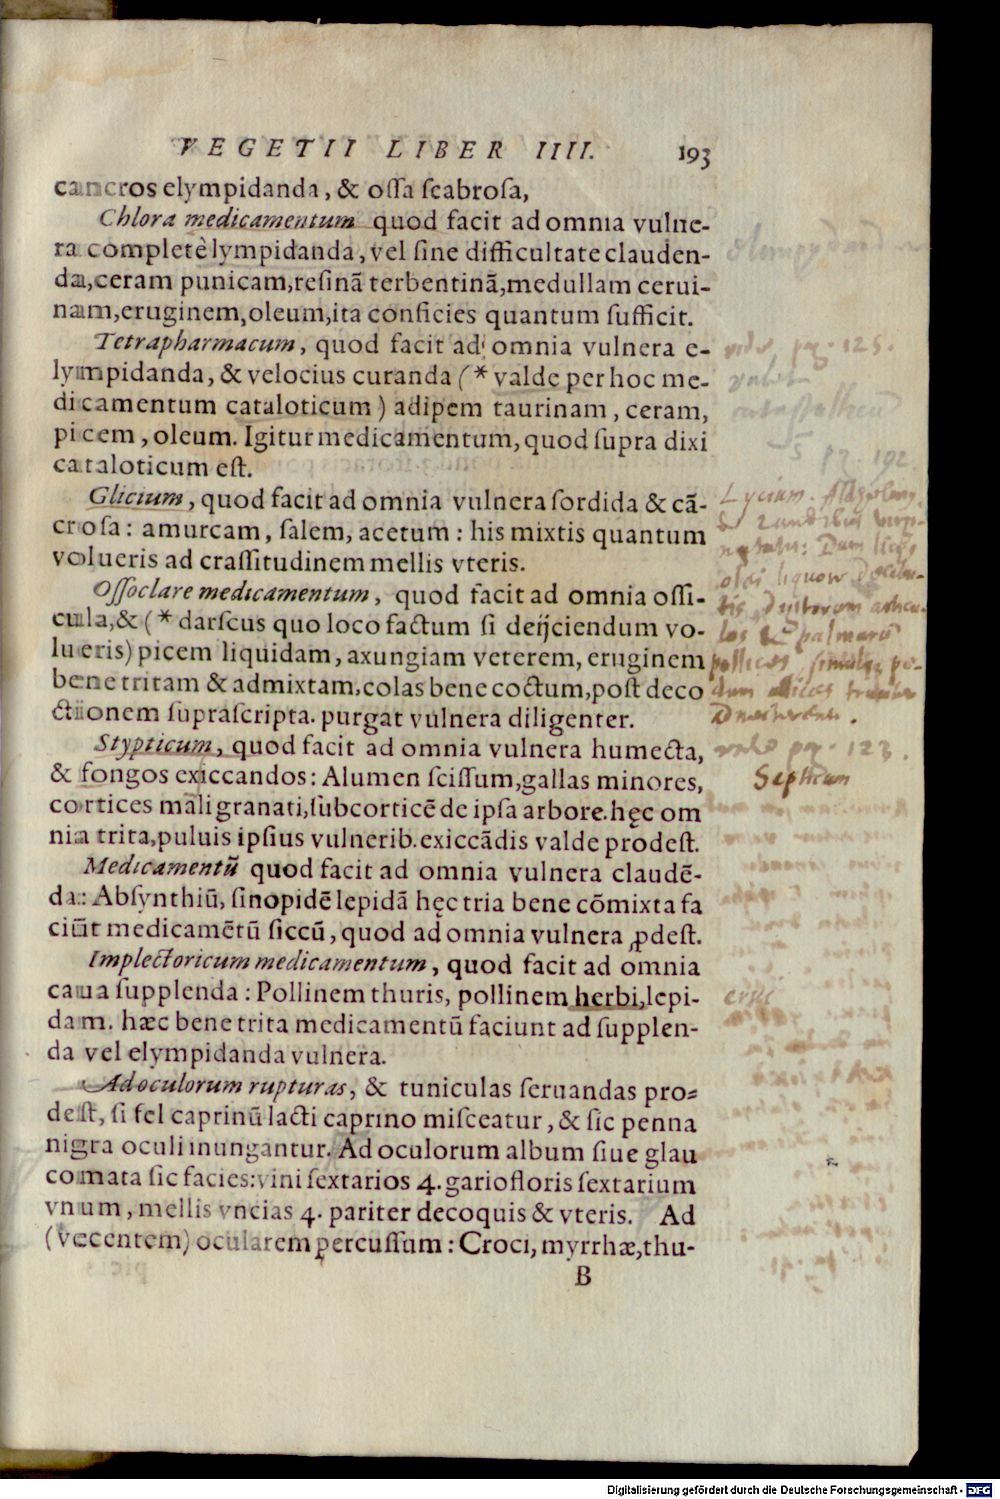 VEGETII LIBER IIII. 193
cancros elympidanda, & ossa scabrosa,
Chlora medicamentum quod facit ad omnia vulne-
ra completè lympidanda, vel sine difficultate clauden-
da, ceram punicam, resinā terbentinā, medullam cerui-
nam, eruginem, oleum, ita conficies quantum sufficit.
Tetrapharmacum, quod facit ad omnia vulnera e-
lympidanda, & velocius curanda (* valde per hoc me-
dicamentum cataloticum) adipem taurinam, ceram,
picem, oleum. Igitur medicamentum, quod supra dixi
cataloticum est.
Glicium, quod facit ad omnia vulnera sordida & cā-
crosa: amurcam, salem, acetum: his mixtis quantum
volueris ad crassitudinem mellis vteris.
Ossoclare medicamentum, quod facit ad omnia ossi-
cula, & (* darscus quo loco factum si deijciendum vo-
lueris) picem liquidam, axungiam veterem, eruginem
bene tritam & admixtam, colas bene coctum, post deco
ctionem suprascripta. purgat vulnera diligenter.
Stypticum, quod facit ad omnia vulnera humecta,
& fongos exiccandos: Alumen scissum, gallas minores,
cortices mali granati, subcorticē de ipsa arbore. hęc om
nia trita, puluis ipsius vulnerib. exiccādis valde prodest.
Medicamentū quod facit ad omnia vulnera claudē-
da: Absynthiū, sinopidē lepidā hęc tria bene cōmixta fa
ciūt medicamētū siccū, quod ad omnia vulnera ꝓdest.
Implectoricum medicamentum, quod facit ad omnia
caua supplenda: Pollinem thuris, pollinem herbi, lepi-
dam. hæc bene trita medicamentū faciunt ad supplen-
da vel elympidanda vulnera.
Ad oculorum rupturas, & tuniculas seruandas pro-
dest, si fel caprinū lacti caprino misceatur, & sic penna
nigra oculi inungantur. Ad oculorum album siue glau
comata sic facies: vini sextarios 4. gariofloris sextarium
vnum, mellis vncias 4. pariter decoquis & vteris. Ad
(vecentem) ocularem percussum: Croci, myrrhæ, thu-
B
pag. 125.
pg. 192
Lycium.
pag. 123.
Septicum
Digitalisierung gefördert durch die Deutsche Forschungsgemeinschaft - DFG